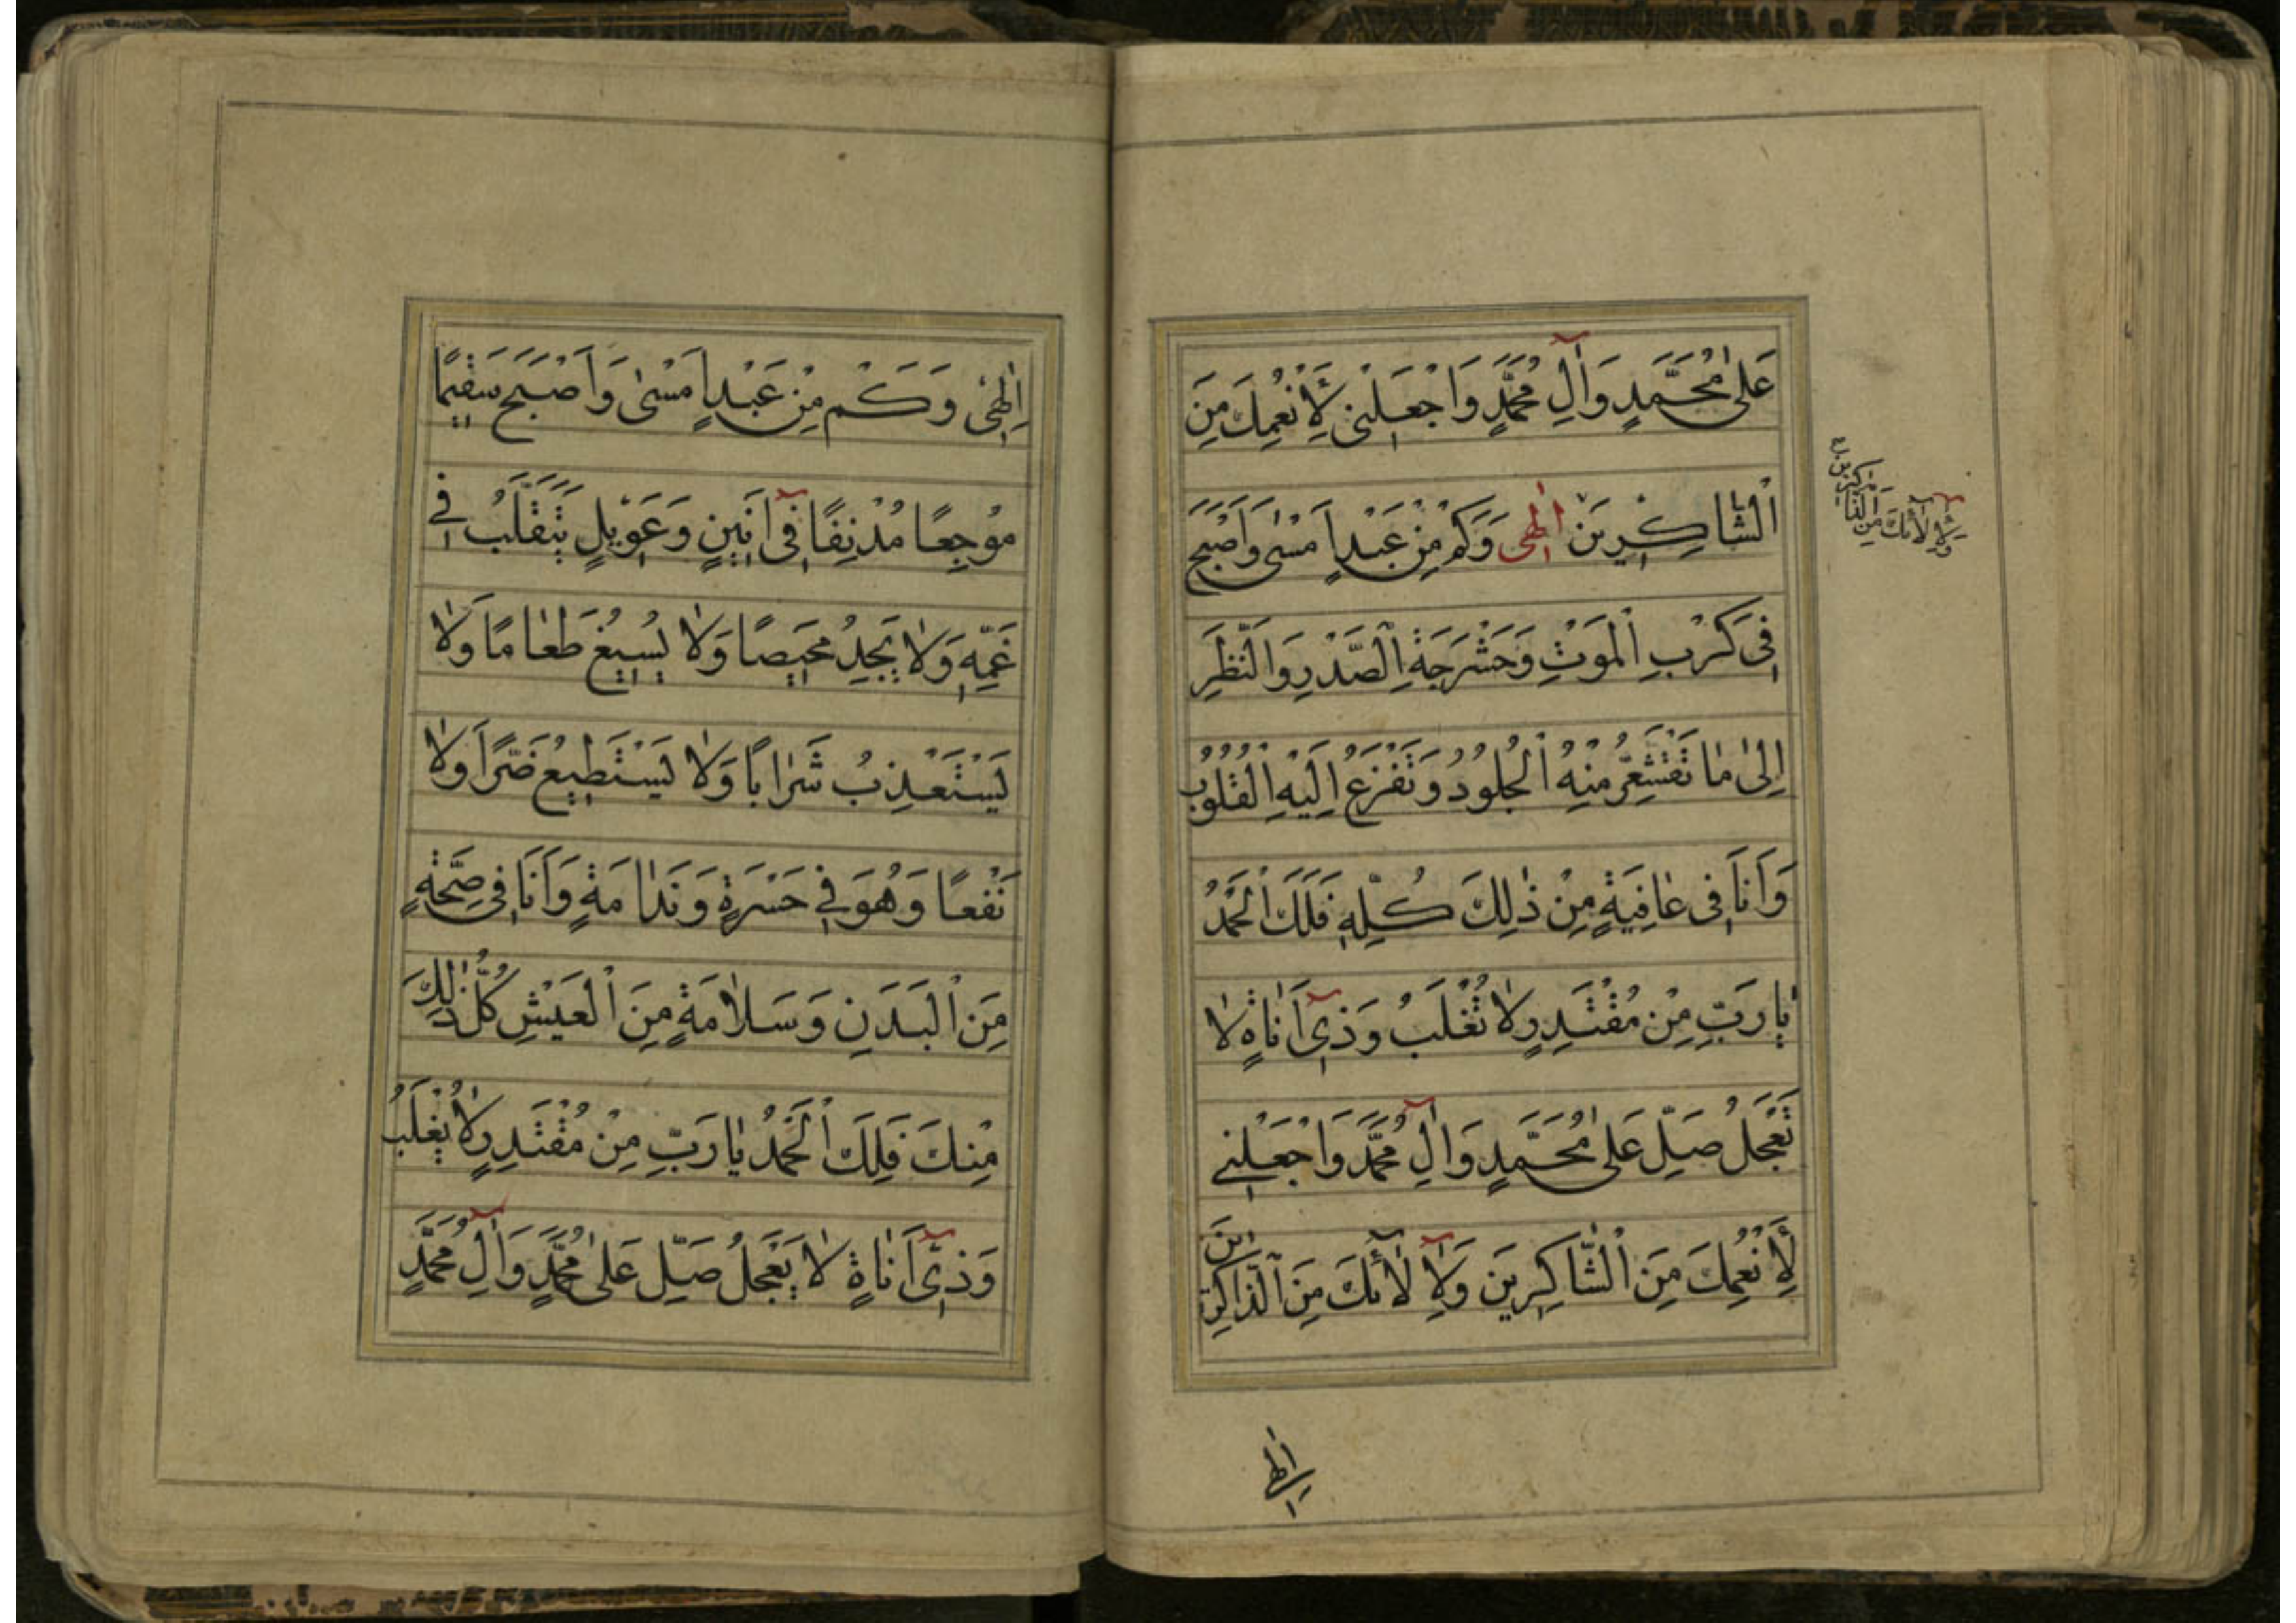 عَلىٰ مُحَمَّدٍ وَاٰلِ مُحَمَّدٍ وَاجْعَلْنى لِأَنْعُمِكَ مِنَ
الْشّاكِرينَ اِلٰهى وَكَمْ مِنْ عَبْدٍ اَمْسىٰ وَاَصْبَحَ
فى كَرْبِ الْمَوْتِ وَحَشْرَجَةِ الصَّدْرِ وَالنَّظَرِ
اِلىٰ مٰا تَقْشَعِرُّ مِنْهُ الْجُلُودُ وَتَفْزَعُ اِلَيْهِ الْقُلُوبُ
وَاَنَا فى عٰافِيَةٍ مِنْ ذٰلِكَ كُلِّهِ فَلَكَ الْحَمْدُ
يٰا رَبِّ مِنْ مُقْتَدِرٍ لاٰ تُغْلَبُ وَذى اَنٰاةٍ لاٰ
تَعْجَلُ صَلِّ عَلىٰ مُحَمَّدٍ وَاٰلِ مُحَمَّدٍ وَاجْعَلْنى
لِأَنْعُمِكَ مِنَ الْشّٰاكِرينَ وَلِآلٰائِكَ مِنَ الْذّٰاكِرينَ
وَلِآلائِكَ مِنَ الذّاكِرينَ
اِلٰهى
اِلٰهى وَكَمْ مِنْ عَبْدٍ اَمْسىٰ وَاَصْبَحَ سَقيمًا
مُوجِعًا مُدْنِفًا فى اَنينٍ وَعَويلٍ يَتَقَلَّبُ فى
غَمِّهِ وَلاٰ يَجِدُ مَحيصًا وَلاٰ يُسيغُ طَعٰامًا وَلاٰ
يَسْتَعْذِبُ شَرٰابًا وَلاٰ يَسْتَطيعُ ضَرًّا وَلاٰ
نَفْعًا وَهُوَ فى حَسْرَةٍ وَنَدٰامَةٍ وَاَنَا فى صِحَّةٍ
مِنَ الْبَدَنِ وَسَلاٰمَةٍ مِنَ الْعَيْشِ كُلُّ ذٰلِكَ
مِنْكَ فَلَكَ الْحَمْدُ يٰا رَبِّ مِنْ مُقْتَدِرٍ لاٰ يُغْلَبُ
وَذى اَنٰاةٍ لاٰ يَعْجَلُ صَلِّ عَلىٰ مُحَمَّدٍ وَاٰلِ مُحَمَّدٍ